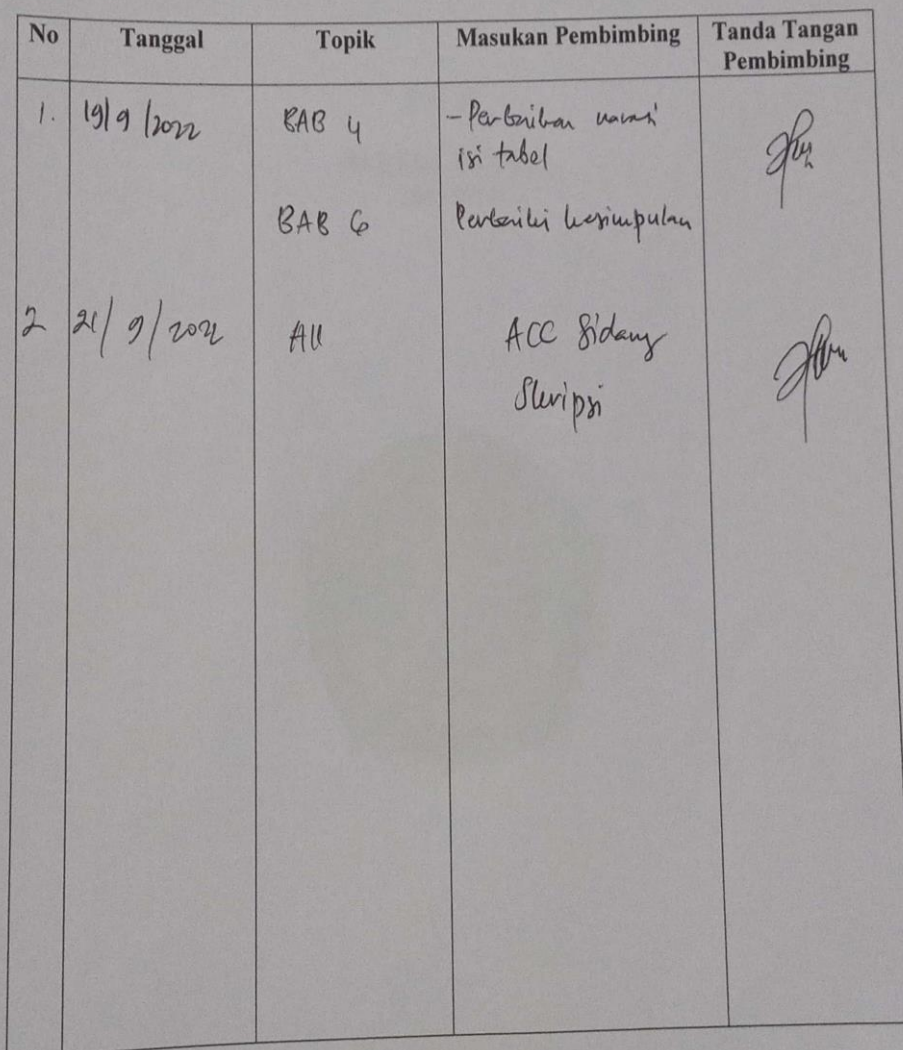 No Tanggal Topik Masukan Pembimbing Tanda Tangan Pembimbing
1. 19/9/2022 BAB 4 - Perbaikan narasi
isi tabel
BAB 6 Perbaiki kesimpulan
2 21/9/2022 All ACC Sidang
Skripsi